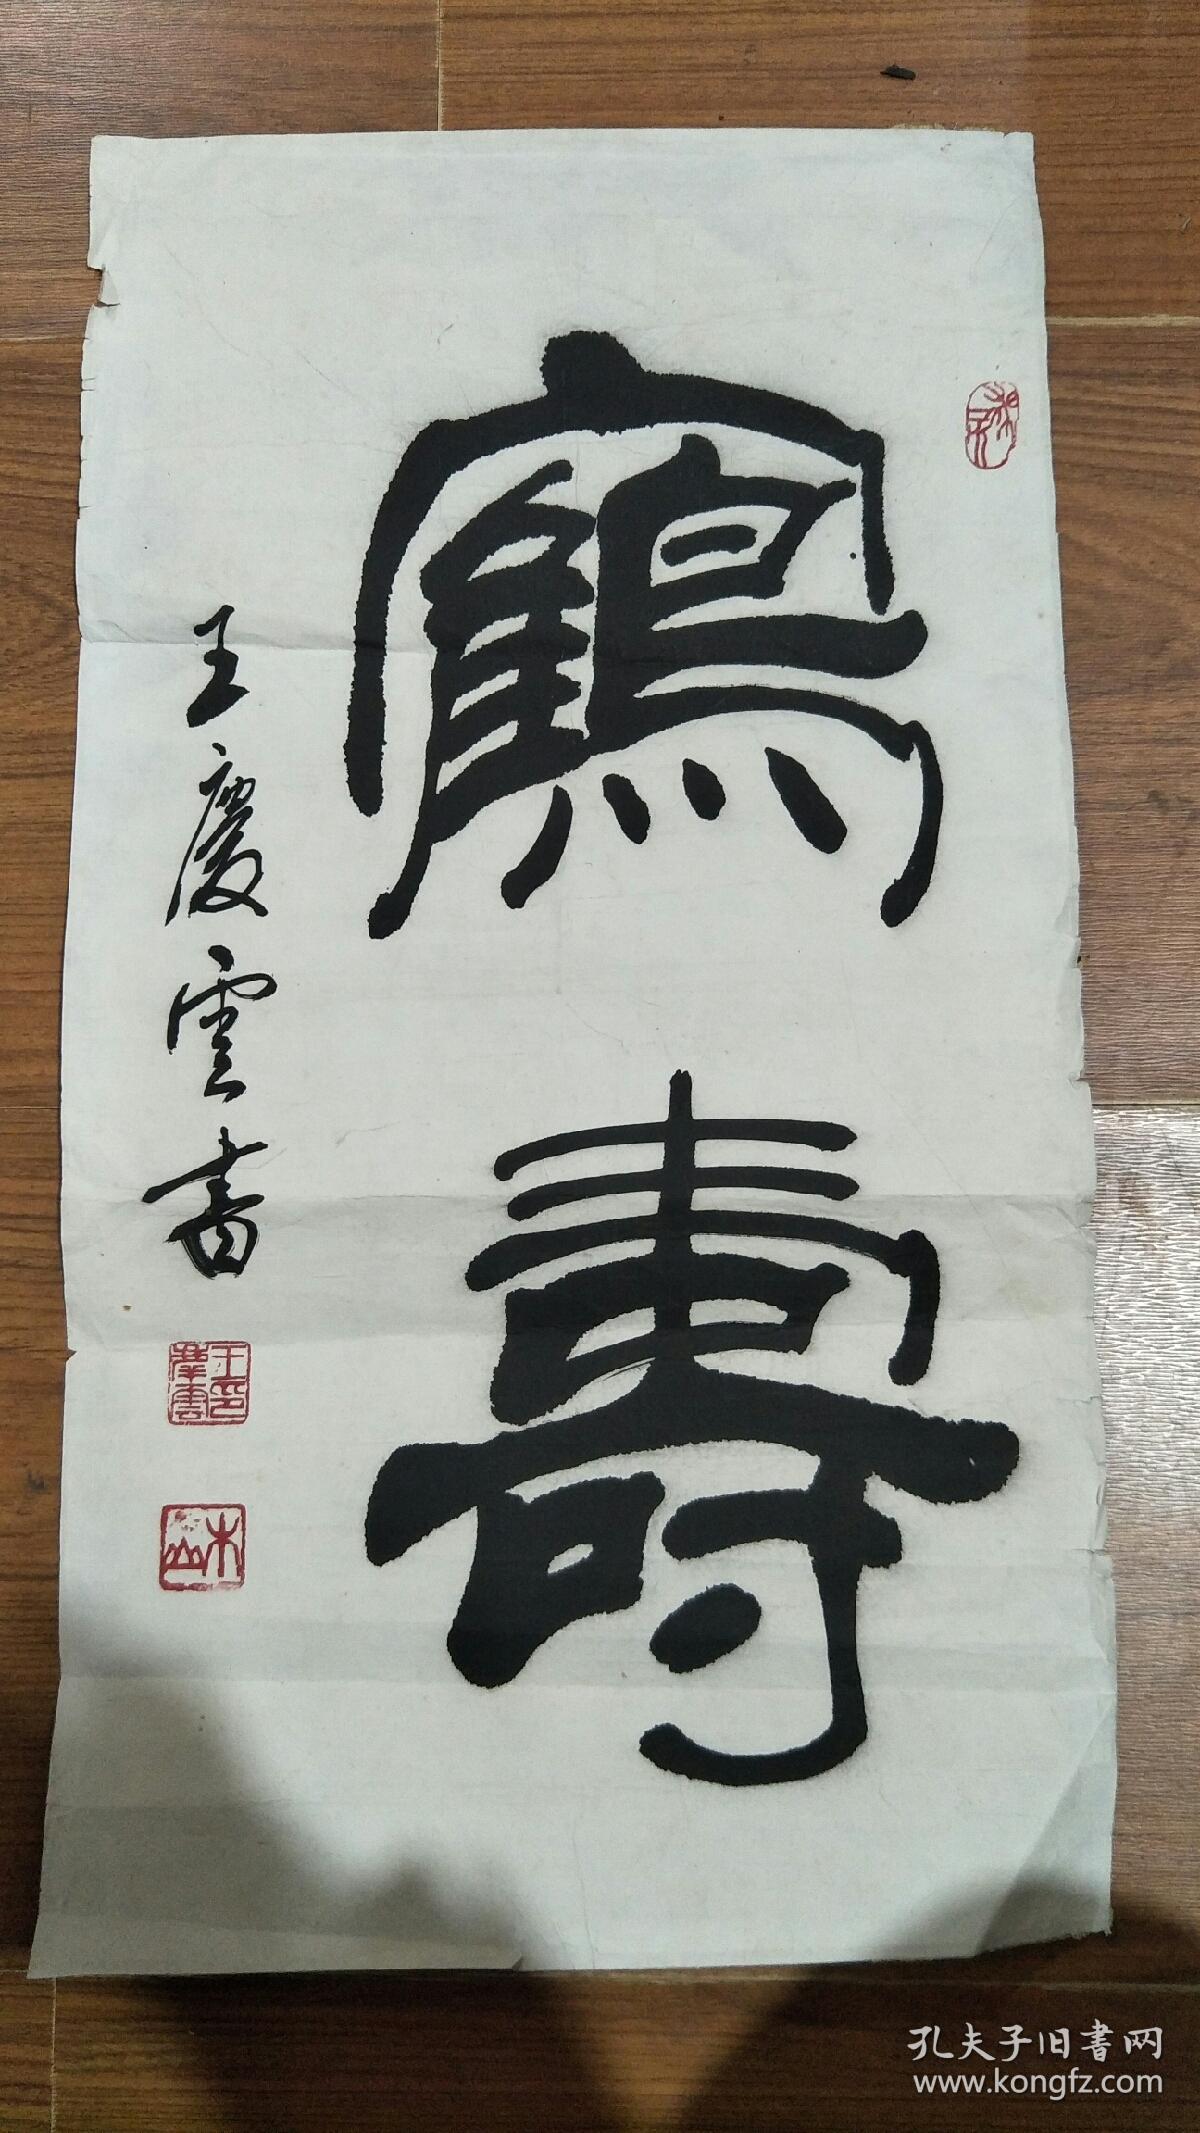 鶴壽
王慶雲書
王印慶雲
木山
孔夫子旧书网
www.kongfz.com